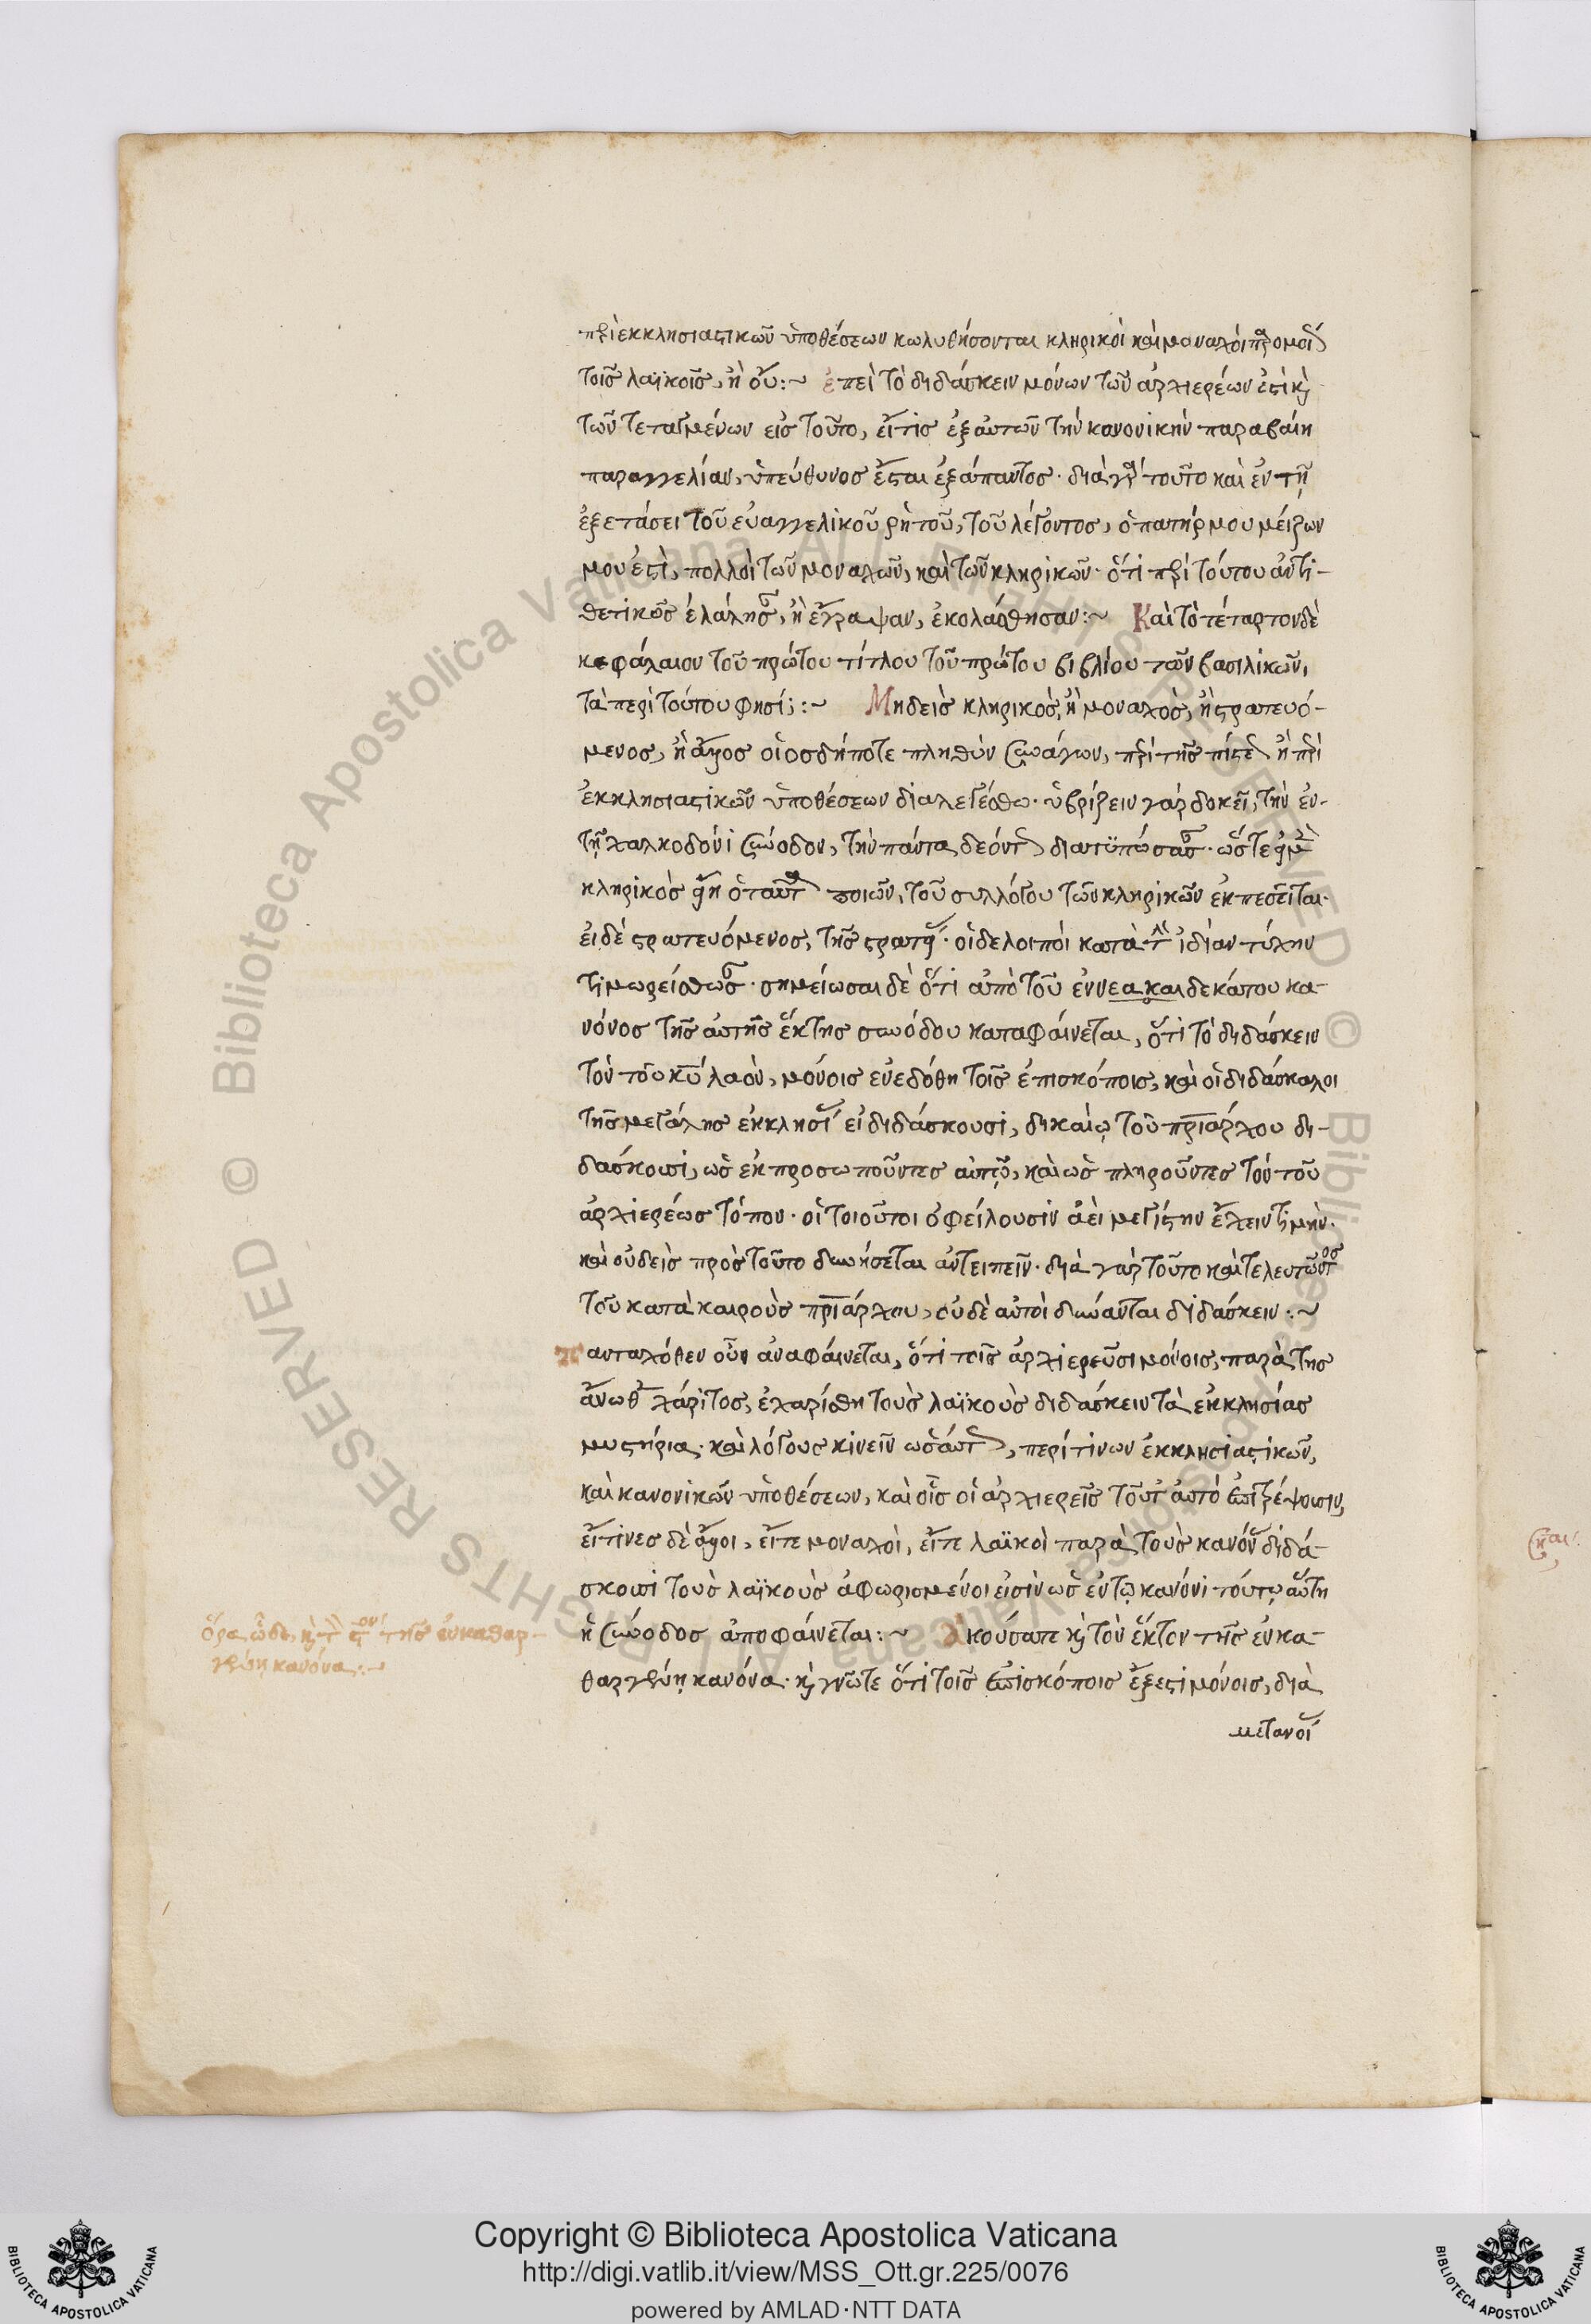 περὶ ἐκκλησιαστικῶν ὑποθέσεων κωλυθήσονται κληρικοὶ καὶ μοναχοὶ
τοῖς λαϊκοῖς, ἢ οὔ:~ ἐπεὶ τὸ διδάσκειν μόνων τῶν ἀρχιερέων ἐστὶ καὶ
τῶν τεταγμένων εἰς τοῦτο, εἴτις ἐξ αὐτῶν τὴν κανονικὴν παραβαίη
παραγγελίαν, ὑπεύθυνος ἔσται ἐξάπαντος. διὰ γὰρ τοῦτο καὶ ἐν τῇ
ἐξετάσει τοῦ εὐαγγελικοῦ ῥητοῦ, τοῦ λέγοντος, ὁ πατήρ μου μείζων
μου ἐστὶ, πολλοὶ τῶν μοναχῶν, καὶ τῶν κληρικῶν. ὅτι περὶ τούτου ἀντι-
θετικῶς ἐλάλησαν, ἢ ἔγραψαν, ἐκολάσθησαν:~ Καὶ τὸ τέταρτον δὲ
κεφάλαιον τοῦ πρώτου τίτλου τοῦ πρώτου βιβλίου τῶν βασιλικῶν,
τὰ περὶ τούτου φησί:~ Μηδεὶς κληρικὸς, ἢ μοναχὸς, ἢ στρατευό-
μενος, ἢ ἄλλος οἱοσδήποτε πληθὺν συνάγων, περὶ τῆς πίστεως ἢ περὶ
ἐκκλησιαστικῶν ὑποθέσεων διαλεγέσθω. ὑβρίζειν γὰρ δοκεῖ, τὴν ἐν
τῇ χαλκοδόνι σύνοδον, τὴν πάντα δεόντως διατυπώσασαν. ὥστε εἰ μὲν
κληρικὸς εἴη ὁ ταῦτα ποιῶν, τοῦ συλλόγου τῶν κληρικῶν ἐκπεσεῖται.
εἰ δὲ στρατευόμενος, τῆς στρατείας. οἱ δὲ λοιποὶ κατὰ τὴν ἰδίαν τύχην
τιμωρείσθωσαν. σημείωσαι δὲ ὅτι ἀπὸ τοῦ ἐννεακαιδεκάτου κα-
νόνος τῆς αὐτῆς ἕκτης συνόδου καταφαίνεται, ὅτι τὸ διδάσκειν
τὸν τοῦ κυ λαὸν, μόνοις ἐνεδόθη τοῖς ἐπισκόποις, καὶ οἱ διδάσκαλοι
τῆς μεγάλης ἐκκλησίας εἰ διδάσκουσι, δικαίῳ τοῦ πριάρχου δι-
δάσκουσι, ὡς ἐκπροσωποῦντες αὐτοῦ, καὶ ὡς πληροῦντες τὸν τοῦ
ἀρχιερέως τόπον. οἱ τοιοῦτοι ὀφείλουσιν ἀεὶ μεγίστην ἔχειν τιμὴν.
καὶ οὐδεὶς πρὸς τοῦτο δυνήσεται ἀντειπεῖν. διὰ γὰρ τοῦτο καὶ τελευτῶντος
τοῦ κατὰ καιροὺς πριάρχου, οὐδὲ αὐτοὶ δύνανται διδάσκειν:~
πανταχόθεν οὖν ἀναφαίνεται, ὅτι τοῖς ἀρχιερεῦσι μόνοις, παρὰ τῆς
ἄνωθεν χάριτος, ἐχαρίσθη τοὺς λαϊκοὺς διδάσκειν τὰ ἐκκλησίας
μυστήρια. καὶ λόγους κινεῖν ὡσαύτως, περί τινων ἐκκλησιαστικῶν,
καὶ κανονικῶν ὑποθέσεων, καὶ οἷς οἱ ἀρχιερεῖς τοῦτ' αὐτὸ ἐπιτρέψουσιν,
εἴτινες δὲ ἄλλοι, εἴτε μοναχοὶ, εἴτε λαϊκοὶ παρὰ τοὺς κανόνας διδά-
σκουσι τοὺς λαϊκοὺς ἀφωρισμένοι εἰσὶν ὡς ἐν τῷ κανόνι τούτῳ αὕτη
ἡ σύνοδος ἀποφαίνεται:~ ἀκούσατε καὶ τὸν ἕκτον τῆς ἐν κα-
θαργένῃ κανόνα. καὶ γνῶτε ὅτι τοῖς ἐπισκόποις ἔξεστι μόνοις, διὰ
μετανοί
ὅρα ὧδε, καὶ τὸν ςον τῆς ἐν καθαρ-
γένῃ κανόνα:~
Copyright © Biblioteca Apostolica Vaticana
http://digi.vatlib.it/view/MSS_Ott.gr.225/0076
powered by AMLAD·NTT DATA